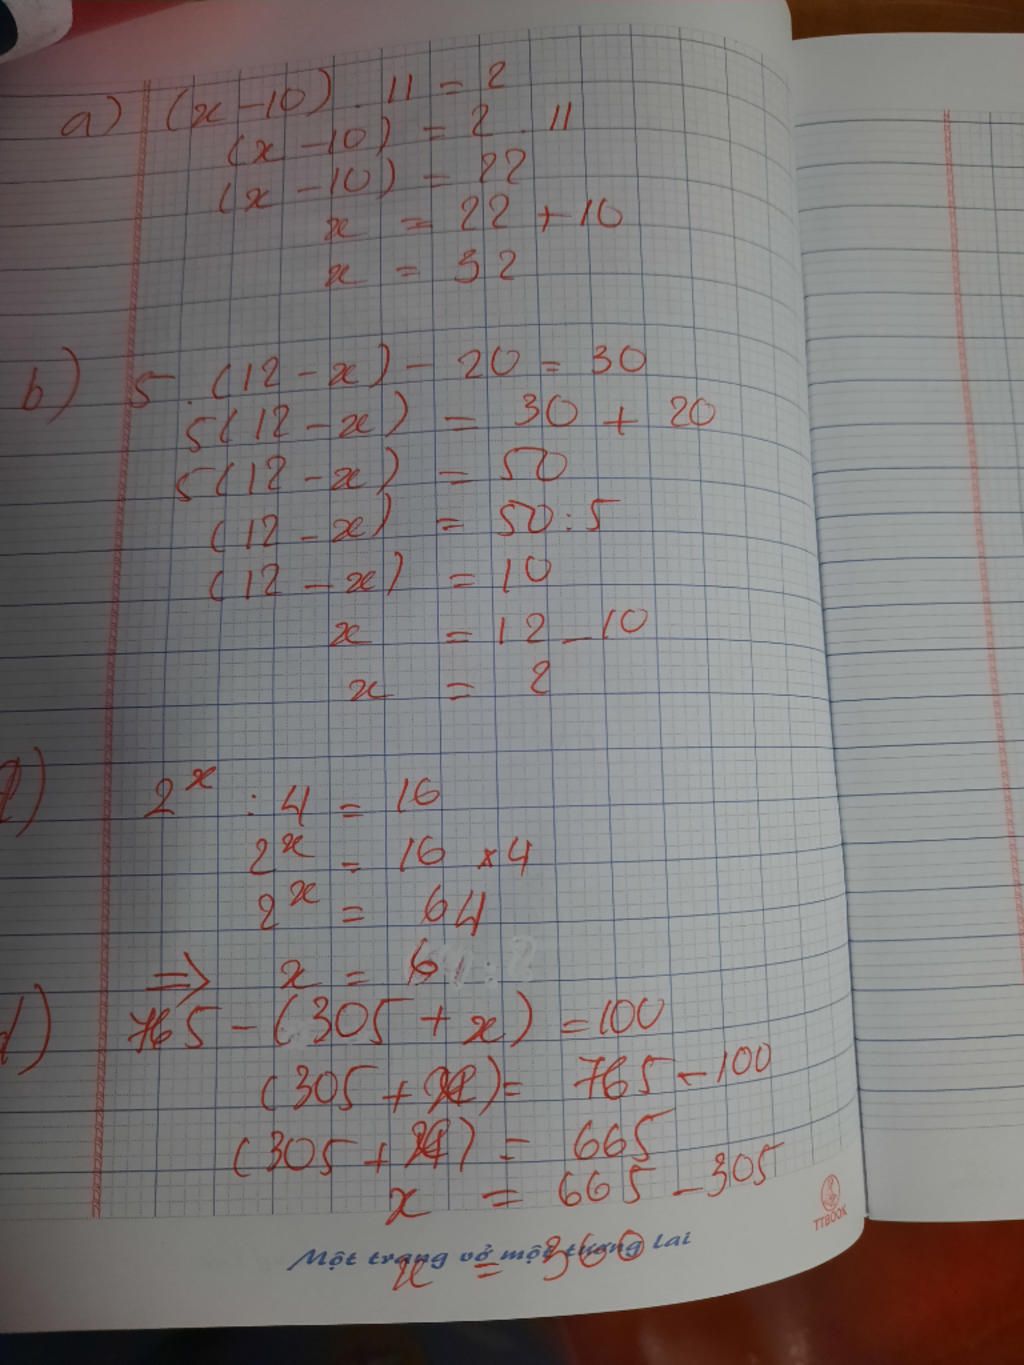 a) (x - 10) . 11 = 2
(x - 10) = 2 . 11
(x - 10) = 22
x = 22 + 10
x = 32
b) 5 . (12 - x) - 20 = 30
5(12 - x) = 30 + 20
5(12 - x) = 50
(12 - x) = 50 : 5
(12 - x) = 10
x = 12 - 10
x = 2
2ˣ : 4 = 16
2ˣ = 16 x 4
2ˣ = 64
=> x = 6
d) 765 - (305 + x) = 100
(305 + x) = 765 - 100
(305 + x) = 665
x = 665 - 305
TTBOOK
Một trang vở một tương lai
x = 360